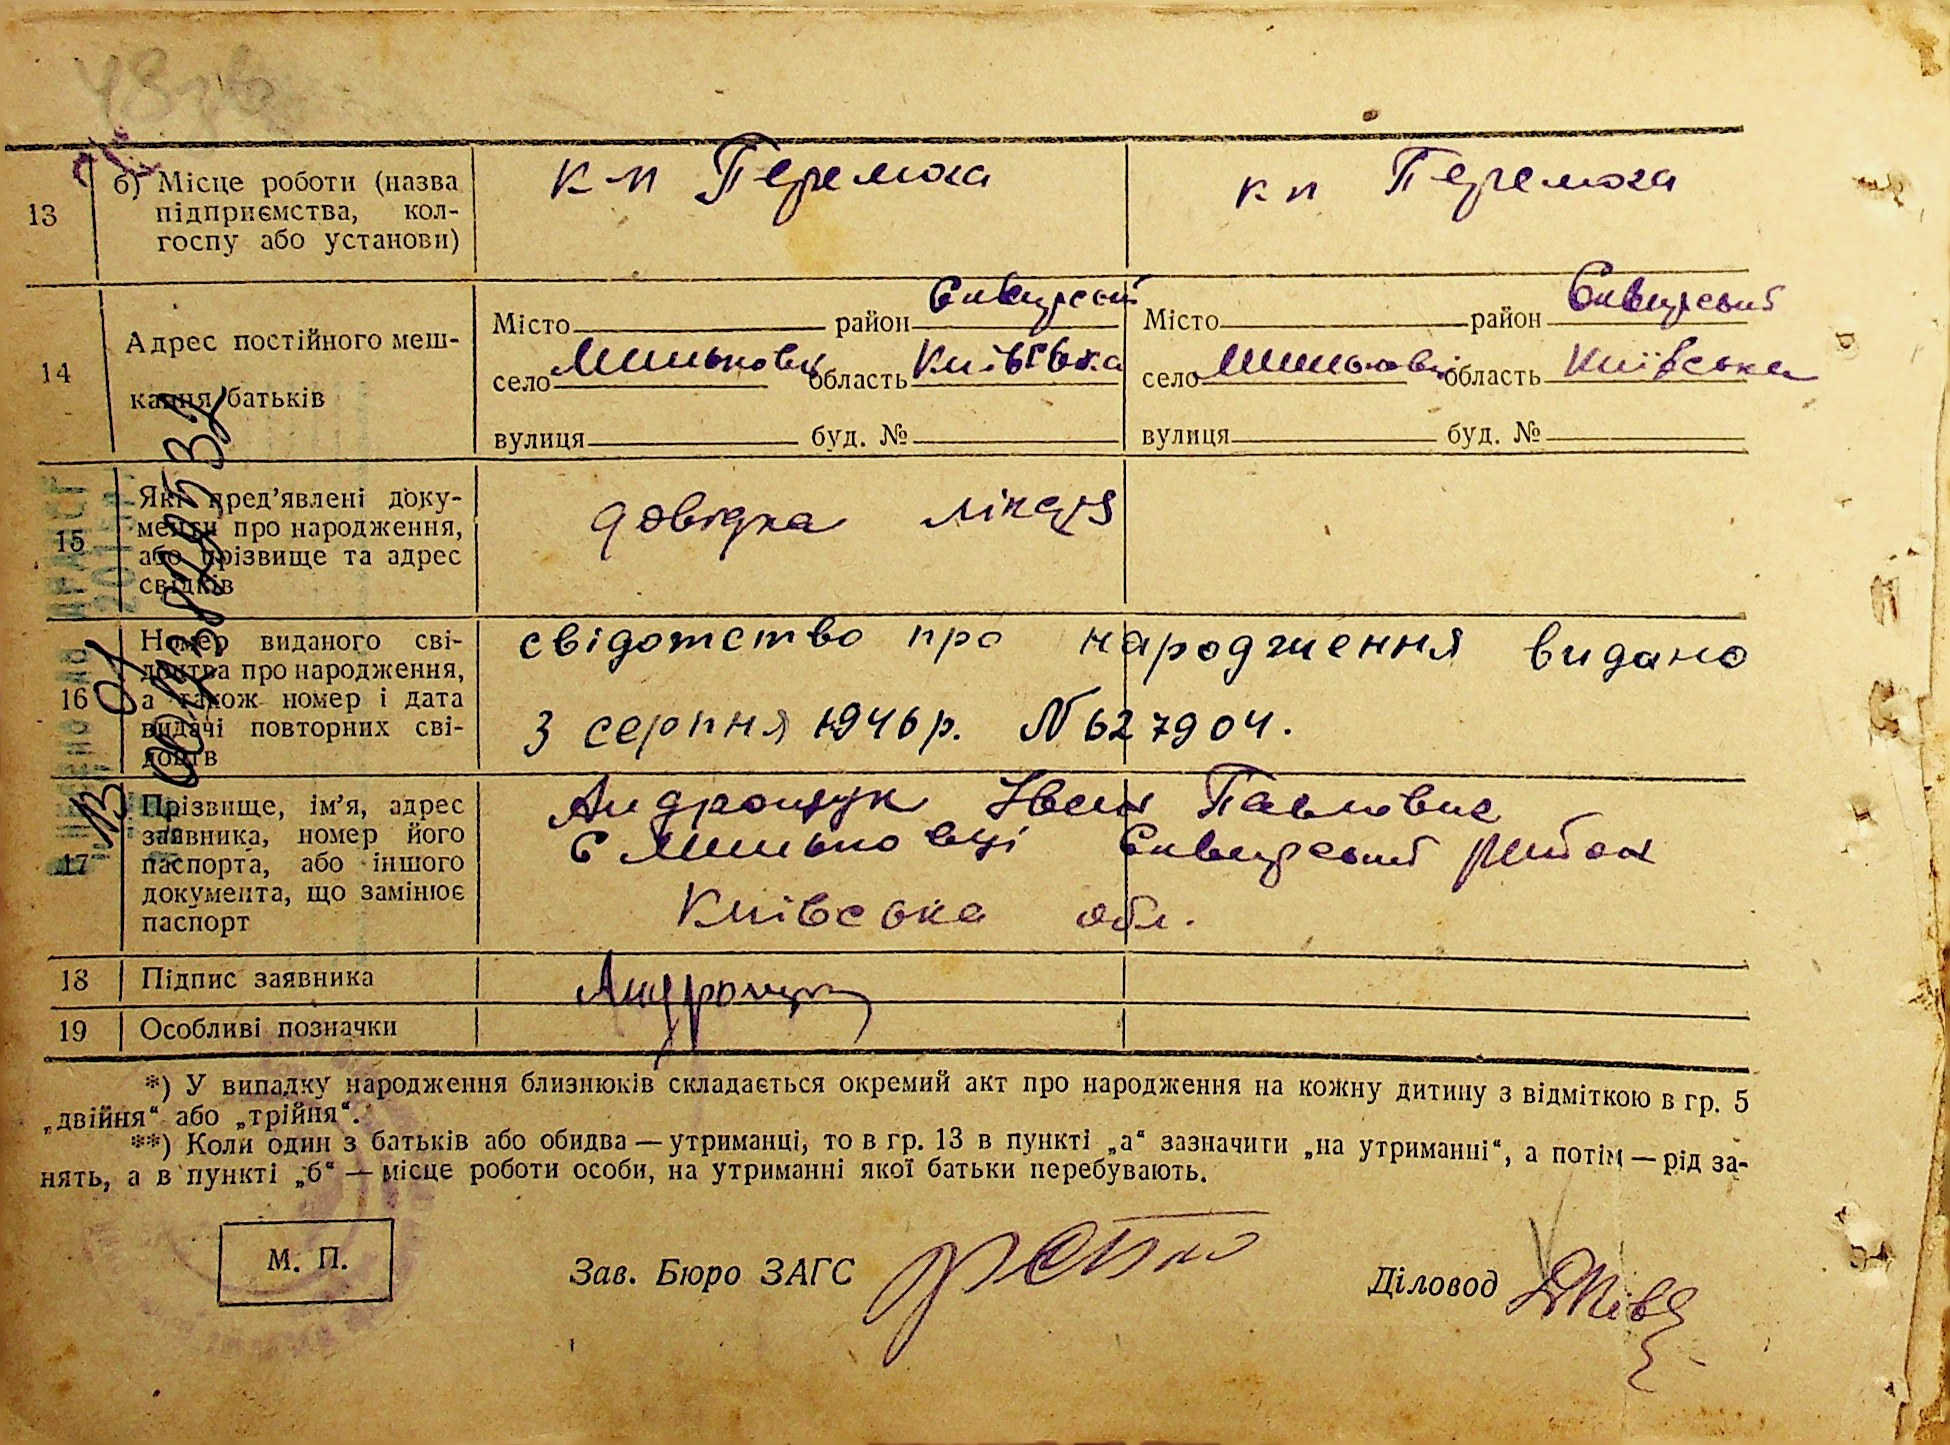 13
б) Місце роботи (назва
підприємства, кол-
госпу або установи)
к-п Перемога
кп Перемога
14
Адрес постійного меш-
кання батьків
Місто район Сквирський
село Шиньковці область Київська
вулиця буд. №
Місто район Сквирський
село Шиньковці область Київська
вулиця буд. №
15
Які пред'явлені доку-
менти про народження,
або прізвище та адрес
свідків
довідка лікаря
16
Номер виданого сві-
доцтва про народження,
а також номер і дата
видачі повторних сві-
доцтв
свідотство про народження видано
3 серпня 1946р. № 627904.
17
Прізвище, ім'я, адрес
заявника, номер його
паспорта, або іншого
документа, що замінює
паспорт
Андрощук Іван Павлович
с Шиньковці Сквирський район
Київська обл.
18
Підпис заявника
Андрощук
19
Особливі позначки
*) У випадку народження близнюків складається окремий акт про народження на кожну дитину з відміткою в гр. 5
„двійня“ або „трійня“.
**) Коли один з батьків або обидва — утриманці, то в гр. 13 в пункті „а“ зазначити „на утриманні“, а потім — рід за-
нять, а в пункті „б“ — місце роботи особи, на утриманні якої батьки перебувають.
М. П.
Зав. Бюро ЗАГС
Діловод